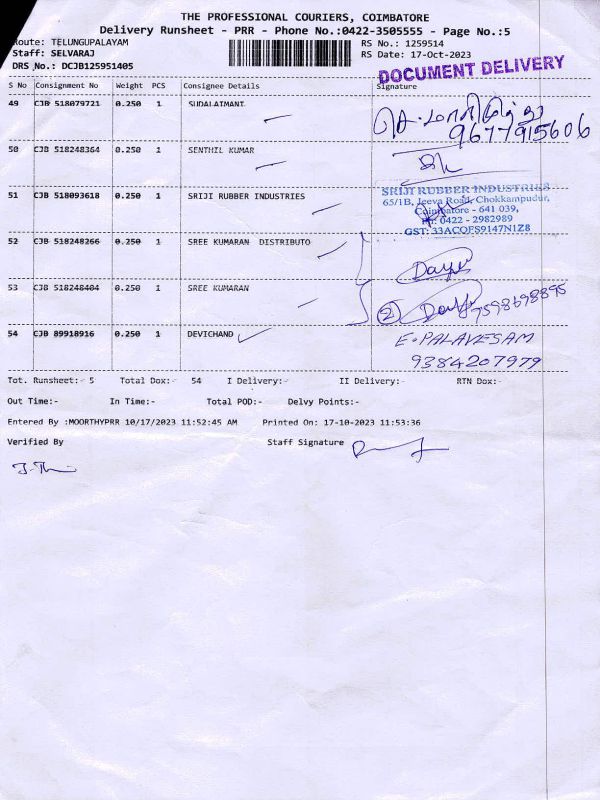 THE PROFESSIONAL COURIERS, COIMBATORE
Delivery Runsheet - PRR - Phone No.:0422-3505555 - Page No.:5
Route: TELUNGUPALAYAM
RS No.: 1259514
Staff: SELVARAJ
RS Date: 17-Oct-2023
DRS No.: DCJB125951405
DOCUMENT DELIVERY
S No Consignment No Weight PCS Consignee Details Signature
49 CJB 518079721 0.250 1 SUDALAIMANI
9677915606
50 CJB 518248364 0.250 1 SENTHIL KUMAR
51 CJB 518093618 0.250 1 SRIJI RUBBER INDUSTRIES
SRIJI RUBBER INDUSTRIES
65/1B, Jeeva Road, Chokkampudur,
Coimbatore - 641 039,
Ph: 0422 - 2982989
GST: 33ACQFS9147N1Z8
52 CJB 518248266 0.250 1 SREE KUMARAN DISTRIBUTO
53 CJB 518248404 0.250 1 SREE KUMARAN
2 7598698895
54 CJB 89918916 0.250 1 DEVICHAND
E. PALAVESAM
9384207979
Tot. Runsheet:- 5 Total Dox:- 54 I Delivery:- II Delivery:- RTN Dox:-
Out Time:- In Time:- Total POD:- Delvy Points:-
Entered By :MOORTHYPRR 10/17/2023 11:52:45 AM Printed On: 17-10-2023 11:53:36
Verified By Staff Signature